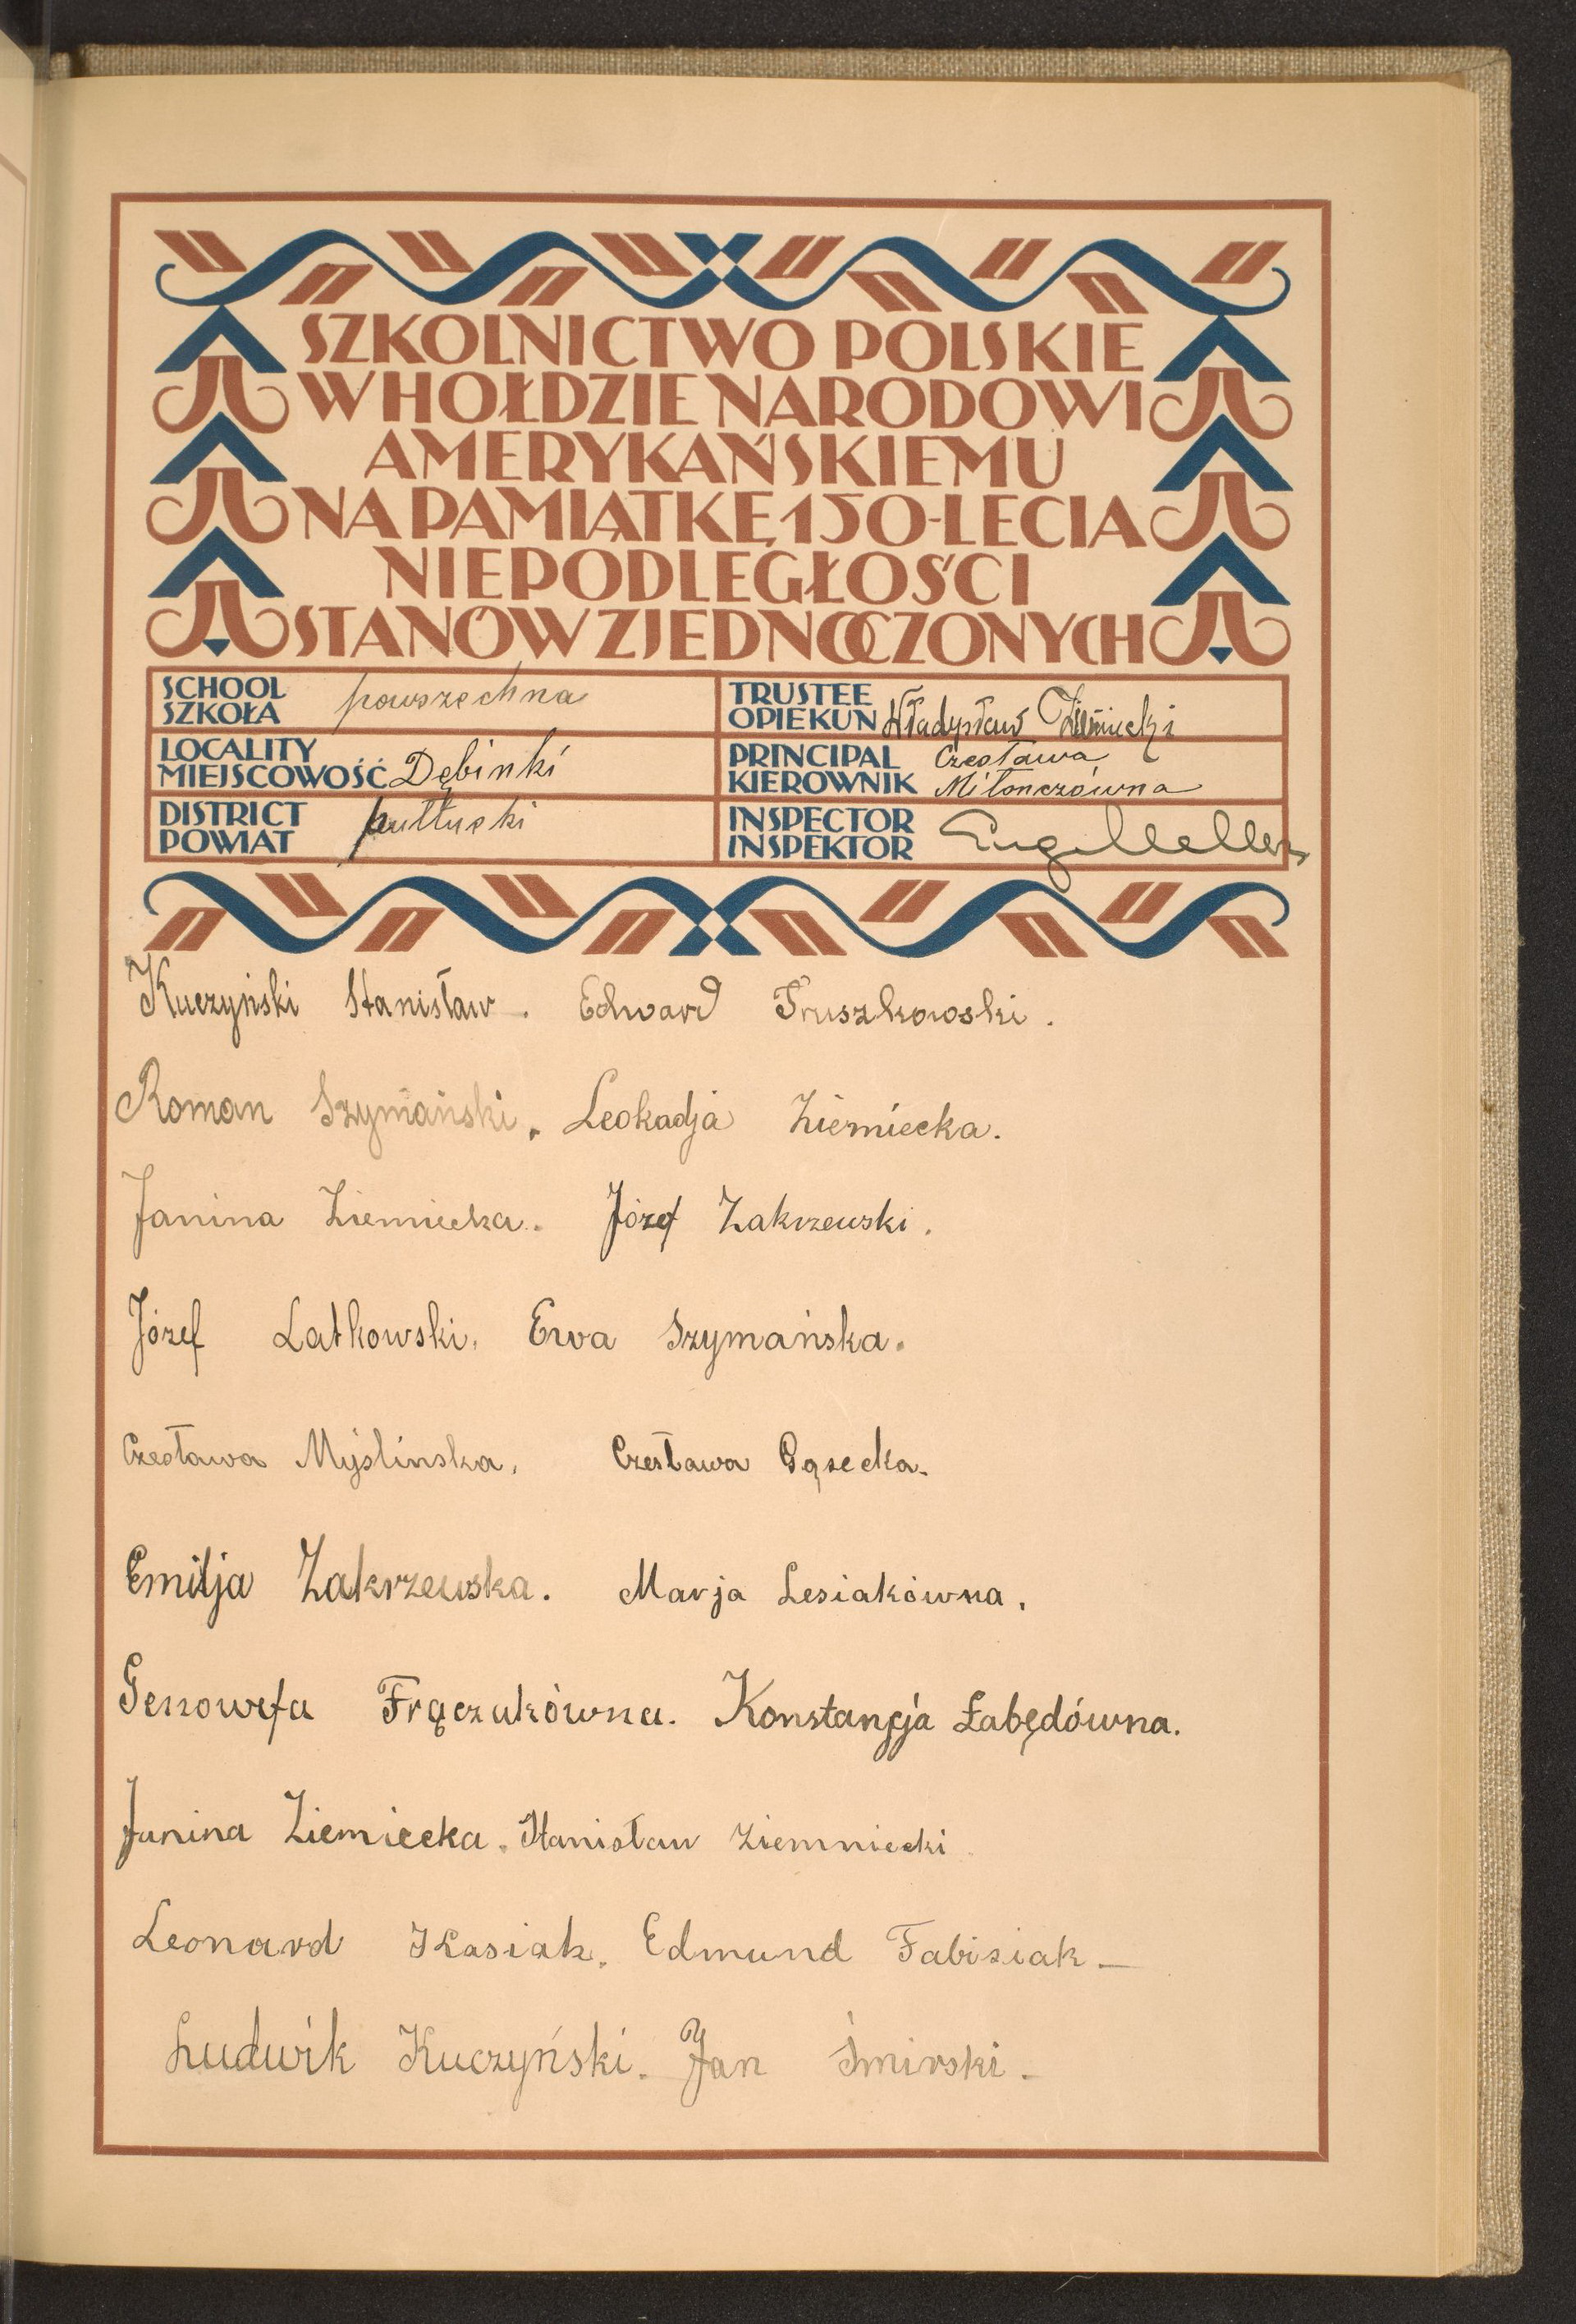 SZKOLNICTWO POLSKIE
W HOŁDZIE NARODOWI
AMERYKAŃSKIEMU
NA PAMIĄTKĘ 150-LECIA
NIEPODLEGŁOŚCI
STANÓW ZJEDNOCZONYCH
SCHOOL
SZKOŁA powszechna
TRUSTEE
OPIEKUN Władysław Ziemiecki
LOCALITY
MIEJSCOWOŚĆ Dębinki
PRINCIPAL Czesława
KIEROWNIK Milonczówna
DISTRICT
POWIAT pułtuski
INSPECTOR
INSPEKTOR
Kuczyński Stanisław. Edward Truszkowski.
Roman Szymański. Leokadja Ziemiecka.
Janina Ziemiecka. Józef Zakrzewski.
Józef Latkowski. Ewa Szymańska.
Czesława Myślinska. Czesława Gąsecka.
Emilja Zakrzewska. Marja Lesiakówna.
Genowefa Frączukówna. Konstancja Łabędówna.
Janina Ziemiecka. Stanisław Ziemniecki
Leonard Kasiak. Edmund Fabisiak –
Ludwik Kuczyński. Jan Śmirski.